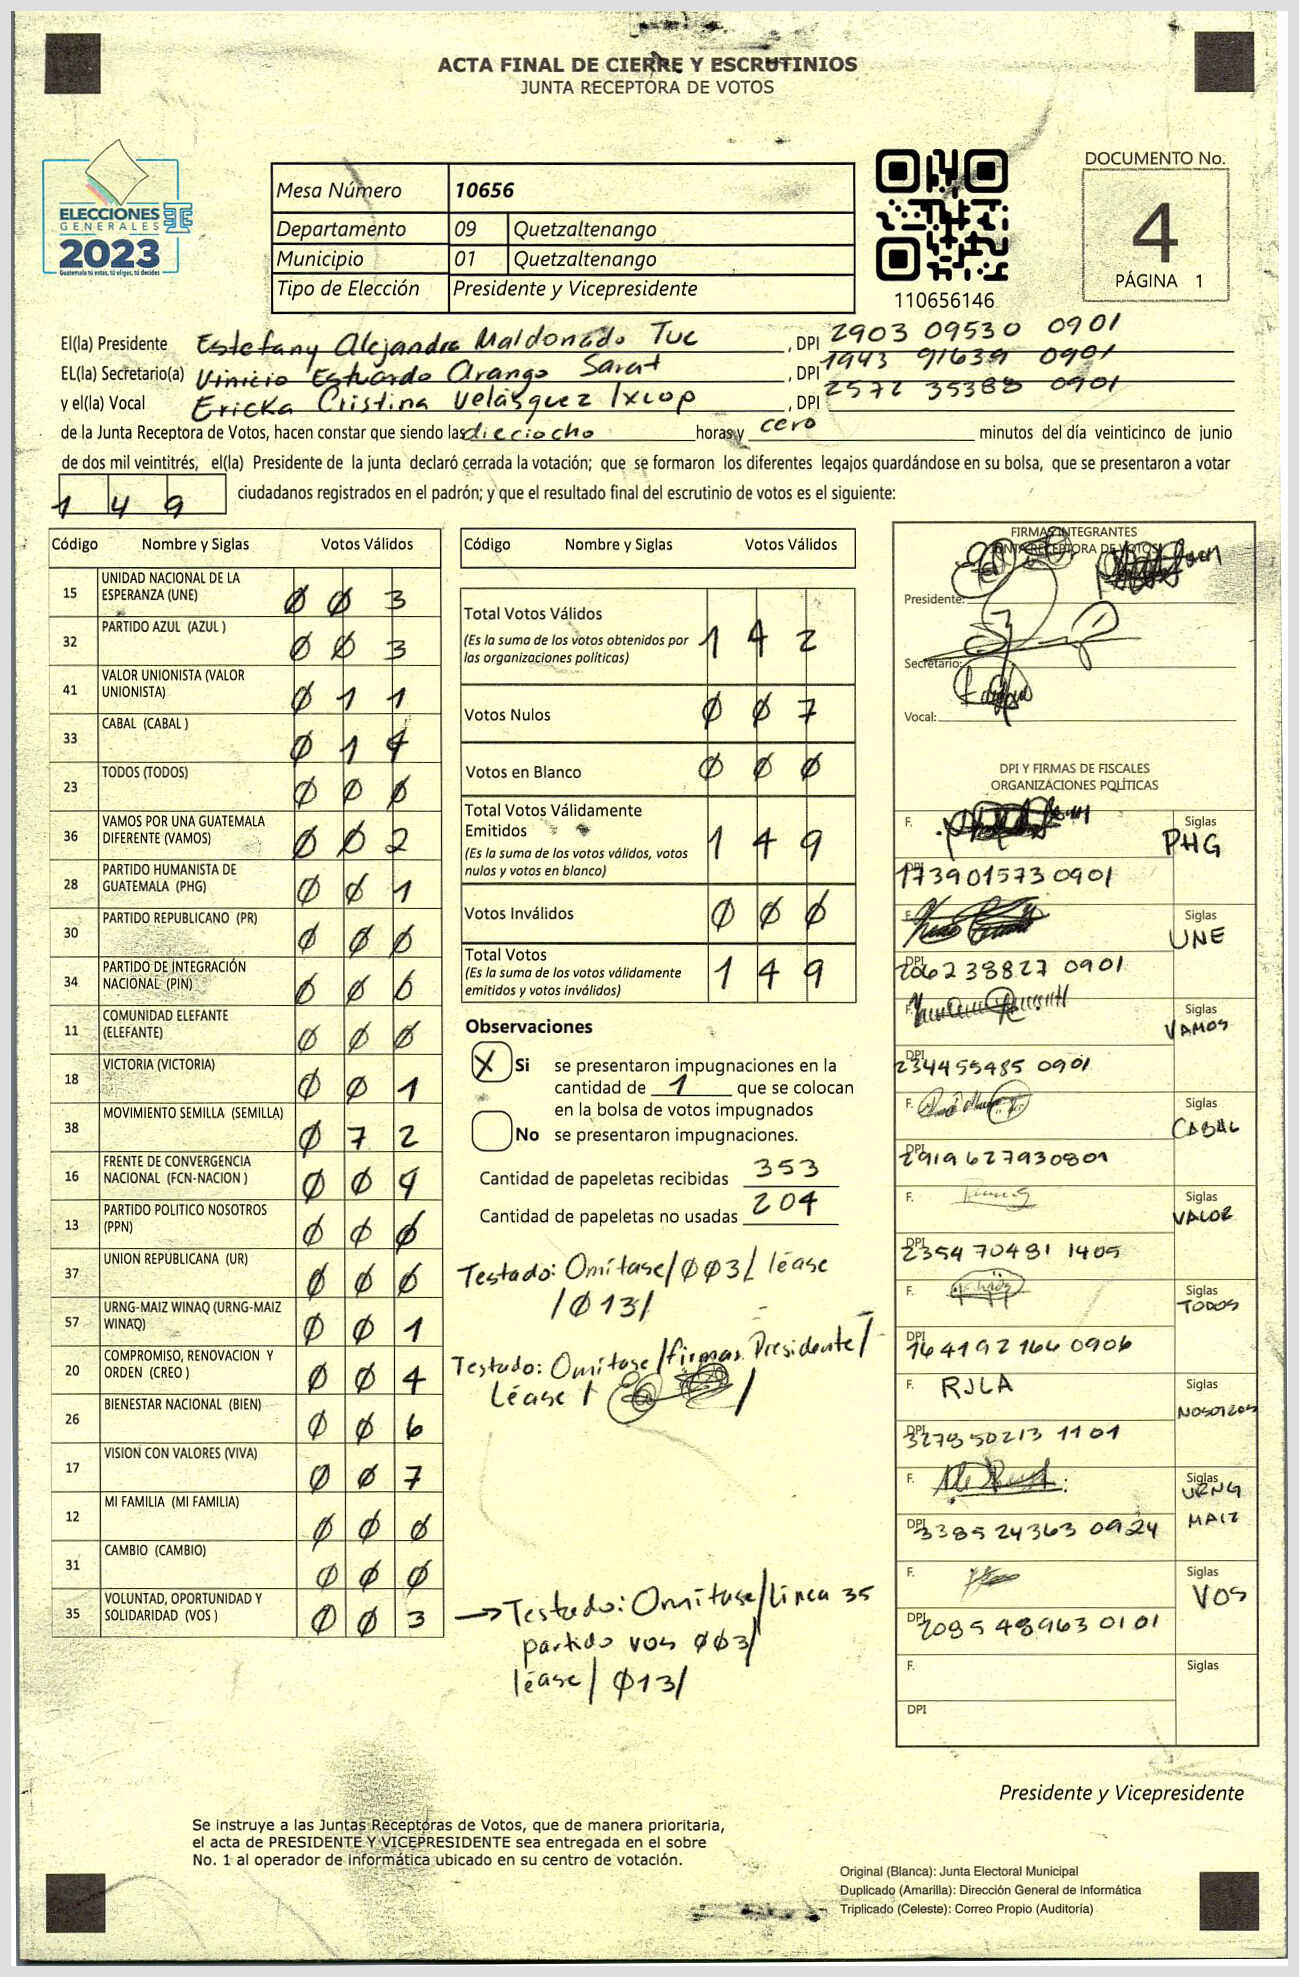 ACTA FINAL DE CIERRE Y ESCRUTINIOS
JUNTA RECEPTORA DE VOTOS
ELECCIONES
GENERALES
2023
Guatemala tú votas, tú eliges, tú decides
Mesa Número 10656
Departamento 09 Quetzaltenango
Municipio 01 Quetzaltenango
Tipo de Elección Presidente y Vicepresidente
110656146
DOCUMENTO No.
4
PÁGINA 1
El(la) Presidente Estefany Alejandra Maldonado Tuc , DPI 2903 09530 0901
EL(la) Secretario(a) Vinicio Estuardo Arango Sarat , DPI 1943 91639 0901
y el(la) Vocal Ericka Cristina Velásquez Ixcop , DPI 2572 35388 0901
de la Junta Receptora de Votos, hacen constar que siendo las dieciocho horas y cero minutos del día veinticinco de junio
de dos mil veintitrés, el(la) Presidente de la junta declaró cerrada la votación; que se formaron los diferentes legajos guardándose en su bolsa, que se presentaron a votar
149 ciudadanos registrados en el padrón; y que el resultado final del escrutinio de votos es el siguiente:
Código Nombre y Siglas Votos Válidos
15 UNIDAD NACIONAL DE LA ESPERANZA (UNE) 0 0 3
32 PARTIDO AZUL (AZUL ) 0 0 3
41 VALOR UNIONISTA (VALOR UNIONISTA) 0 1 1
33 CABAL (CABAL ) 0 1 4
23 TODOS (TODOS) 0 0 0
36 VAMOS POR UNA GUATEMALA DIFERENTE (VAMOS) 0 0 2
28 PARTIDO HUMANISTA DE GUATEMALA (PHG) 0 0 1
30 PARTIDO REPUBLICANO (PR) 0 0 0
34 PARTIDO DE INTEGRACIÓN NACIONAL (PIN) 0 0 0
11 COMUNIDAD ELEFANTE (ELEFANTE) 0 0 0
18 VICTORIA (VICTORIA) 0 0 1
38 MOVIMIENTO SEMILLA (SEMILLA) 0 7 2
16 FRENTE DE CONVERGENCIA NACIONAL (FCN-NACION ) 0 0 4
13 PARTIDO POLITICO NOSOTROS (PPN) 0 0 0
37 UNION REPUBLICANA (UR) 0 0 0
57 URNG-MAIZ WINAQ (URNG-MAIZ WINAQ) 0 0 1
20 COMPROMISO, RENOVACION Y ORDEN (CREO ) 0 0 4
26 BIENESTAR NACIONAL (BIEN) 0 0 6
17 VISION CON VALORES (VIVA) 0 0 7
12 MI FAMILIA (MI FAMILIA) 0 0 0
31 CAMBIO (CAMBIO) 0 0 0
35 VOLUNTAD, OPORTUNIDAD Y SOLIDARIDAD (VOS ) 0 0 3
Código Nombre y Siglas Votos Válidos
Total Votos Válidos 1 4 2
(Es la suma de los votos obtenidos por
las organizaciones políticas)
Votos Nulos 0 0 7
Votos en Blanco 0 0 0
Total Votos Válidamente
Emitidos 1 4 9
(Es la suma de los votos válidos, votos
nulos y votos en blanco)
Votos Inválidos 0 0 0
Total Votos 1 4 9
(Es la suma de los votos válidamente
emitidos y votos inválidos)
Observaciones
X Si se presentaron impugnaciones en la
cantidad de 1 que se colocan
en la bolsa de votos impugnados
No se presentaron impugnaciones.
Cantidad de papeletas recibidas 353
Cantidad de papeletas no usadas 204
Testado: Omítase/003/ léase
/013/
Testado: Omítase/firmas Presidente/
Léase / /
→Testado: Omítase/linea 35
partido vos 003/
léase/ 013/
FIRMAS INTEGRANTES
JUNTA RECEPTORA DE VOTOS
Presidente:
Secretario:
Vocal:
DPI Y FIRMAS DE FISCALES
ORGANIZACIONES POLÍTICAS
F. Siglas PHG
DPI 173901573 0901
F. Siglas UNE
DPI 206238827 0901
F. Siglas VAMOS
DPI 234455485 0901
F. Siglas CABAL
DPI 2919627930801
F. Siglas VALOR
DPI 2354 70481 1405
F. Siglas TODOS
DPI 164192166 0906
F. RJLA Siglas NOSOTROS
DPI 327850213 1101
F. Siglas URNG MAIZ
DPI 3385 24363 0924
F. Siglas VOS
DPI 2085 48963 0101
F. Siglas
DPI
Presidente y Vicepresidente
Se instruye a las Juntas Receptoras de Votos, que de manera prioritaria,
el acta de PRESIDENTE Y VICEPRESIDENTE sea entregada en el sobre
No. 1 al operador de informática ubicado en su centro de votación.
Original (Blanca): Junta Electoral Municipal
Duplicado (Amarilla): Dirección General de Informática
Triplicado (Celeste): Correo Propio (Auditoría)